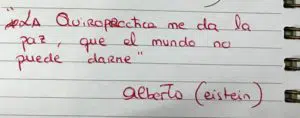 "LA Quiropractica me da la
paz, que el mundo no
puede darne"
alberto (eistein)